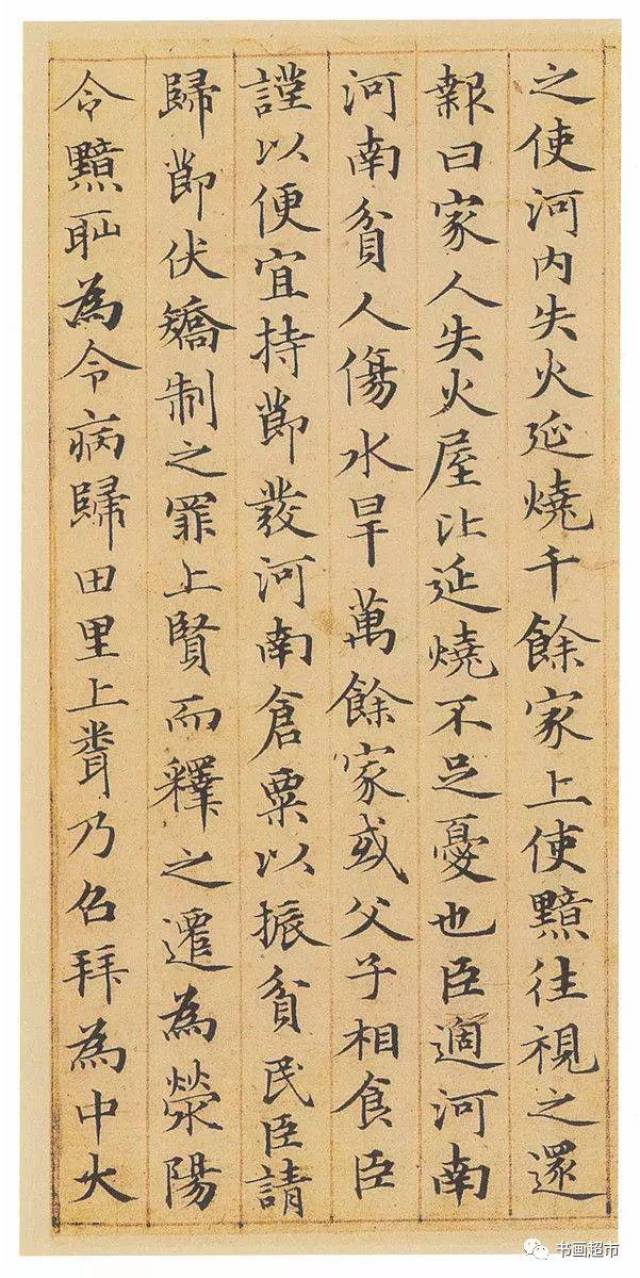 之使河內失火延燒千餘家上使黯往視之還
報曰家人失火屋比延燒不足憂也臣適河南
河南貧人傷水旱萬餘家或父子相食臣
謹以便宜持節發河南倉粟以振貧民臣請
歸節伏矯制之罪上賢而釋之遷為滎陽
令黯耻為令病歸田里上聞乃召拜為中大
书画超市